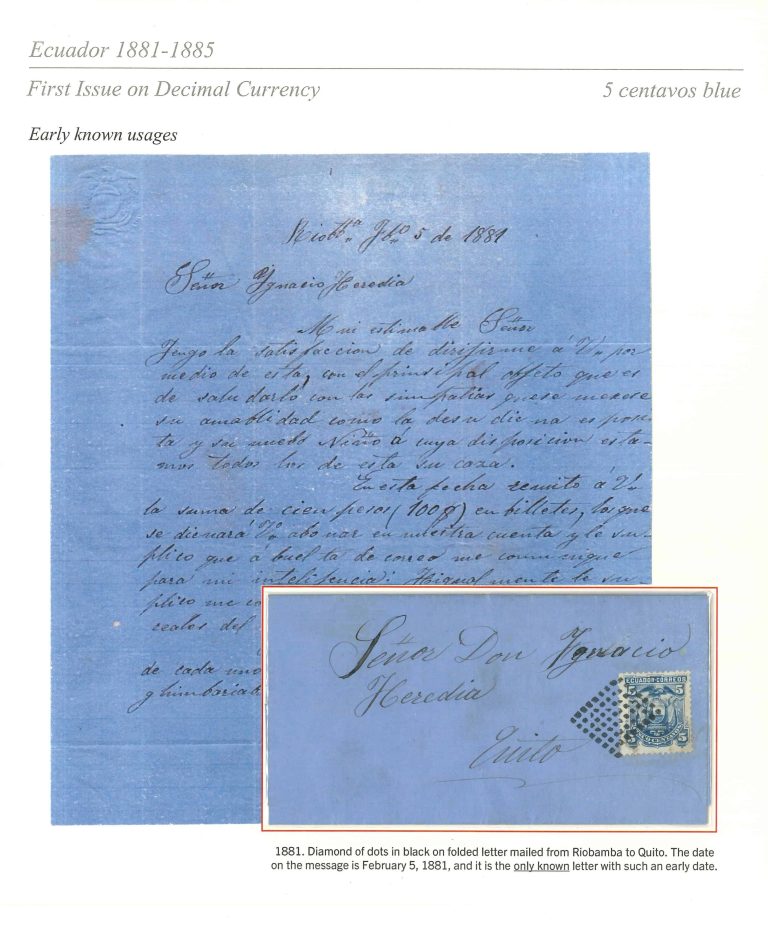 Ecuador 1881-1885
First Issue on Decimal Currency
5 centavos blue
Early known usages
Riobba Fbro 5 de 1881
Señor Ygnacio Heredia
Mui estimable Señor
Tengo la satisfaccion de dirifirme á V. por
medio de esta, con el prinsipal offeto que es
de saludarlo con las simpatias que se merese
su amablidad como la de su diena espose
ta y su nuebo Niño a cuya disposicion esta-
mos todos los de esta su caza.
En esta fecha remito á V.
la suma de cien pesos (100$) en billetes, los que
se dienará V. abonar en nuestra cuenta y le su-
plico que á buelta de correo me comunique
para mi intelifencia. Higualmente le su-
plico me co
reales del
de cada uno
y himbaria
Señor Don Ygnacio
Heredia
Quito
ECUADOR CORREOS
5 5
5 5
1881. Diamond of dots in black on folded letter mailed from Riobamba to Quito. The date
on the message is February 5, 1881, and it is the only known letter with such an early date.